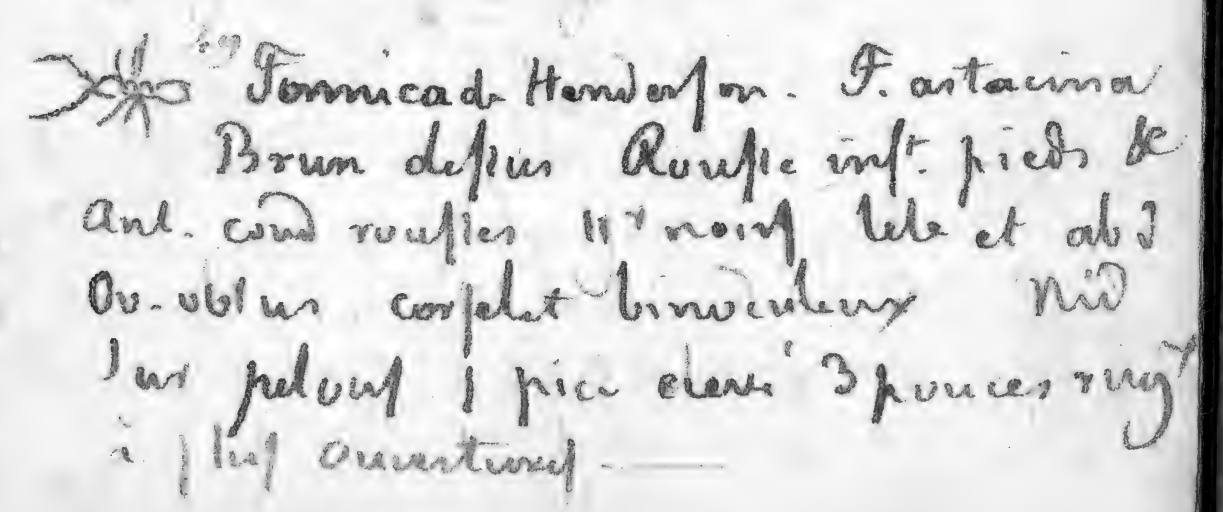 49 Formica de Henderson. F. astacina
Brun dessus Rousse inft. pieds &
Ant. coud rousses noirs tete et abd
Ov. obtus corselet binoduleux Nid
sur pelouse 1 pied elevé 3 pouces
à plus ouvertures